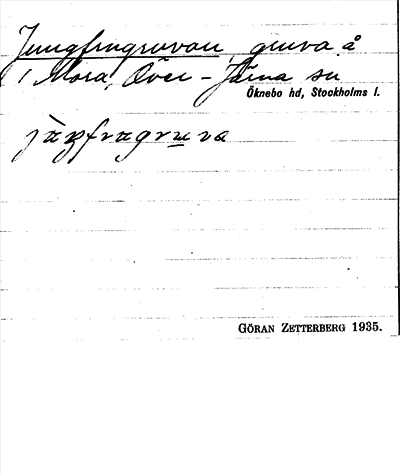 Jungfrugruvan, gruva å
1 Mora, Över-Järna sn
Öknebo hd, Stockholms l.
GÖRAN ZETTERBERG 1935.